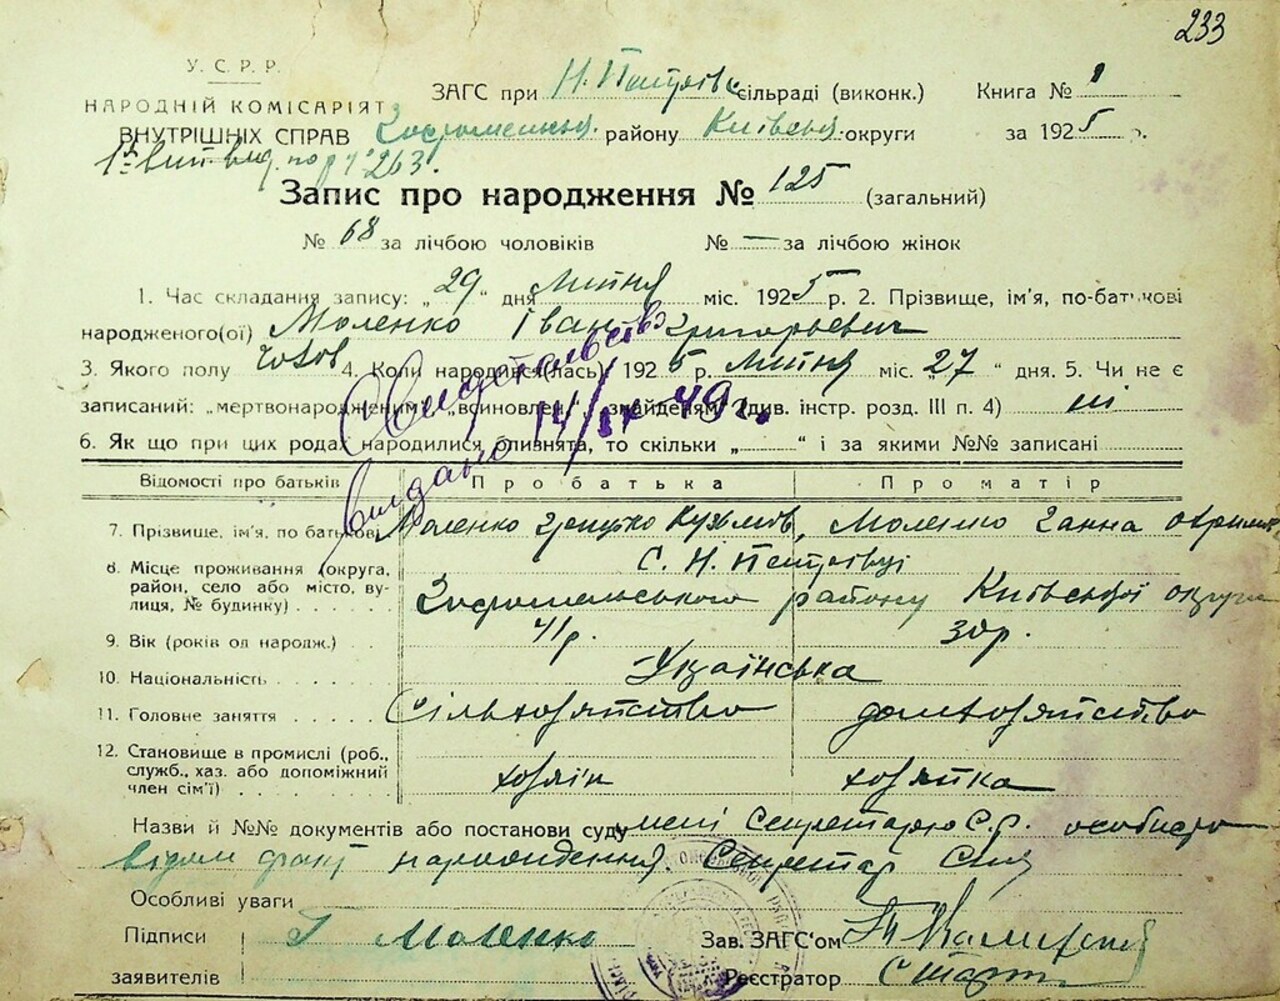 233
У. С. Р. Р.
НАРОДНІЙ КОМІСАРІЯТ
ВНУТРІШНІХ СПРАВ
ЗАГС при Н. Петрівс сільраді (виконк.) Книга № 1
району Київська округи за 1925 р.
по р № 263.
Запис про народження № 125 (загальний)
№ 68 за лічбою чоловіків № — за лічбою жінок
1. Час складання запису: „29“ дня Липня міс. 1925 р. 2. Прізвище, ім'я, по-батькові
народженого(ої) Моленко Іван Григорьевич
3. Якого полу чолов 4. Коли народився(лась) 1925 р. Липня міс. „27“ дня. 5. Чи не є
записаний: „мертвонародженим“, „всиновлен.“, знайденям (див. інстр. розд. III п. 4) ні
6. Як що при цих родах народилися близнята, то скільки „ “ і за якими №№ записані
Свидетельство
видано 14/IX-49 г.
Відомості про батьків Про батька Про матір
7. Прізвище, ім'я, по батькові Моленко Грицько Кузьмов, Моленко Ганна Охримов
8. Місце проживання (округа,
район, село або місто, ву-
лиця, № будинку)
С. Н. Петрівці
району Київської округи
9. Вік (років од народж.) 41 р. 30 р.
10. Національність Українська
11. Головне заняття Сільхозяйство домхозяйство
12. Становище в промислі (роб.,
служб., хаз. або допоміжний
член сім'ї)
хозяін хозяйка
Назви й №№ документів або постанови суду мені Секретарю С.р. особисто
відом факт народження. Секретар
Особливі уваги
Підписи
заявителів
Г Моленко
Зав. ЗАГС'ом
Реєстратор